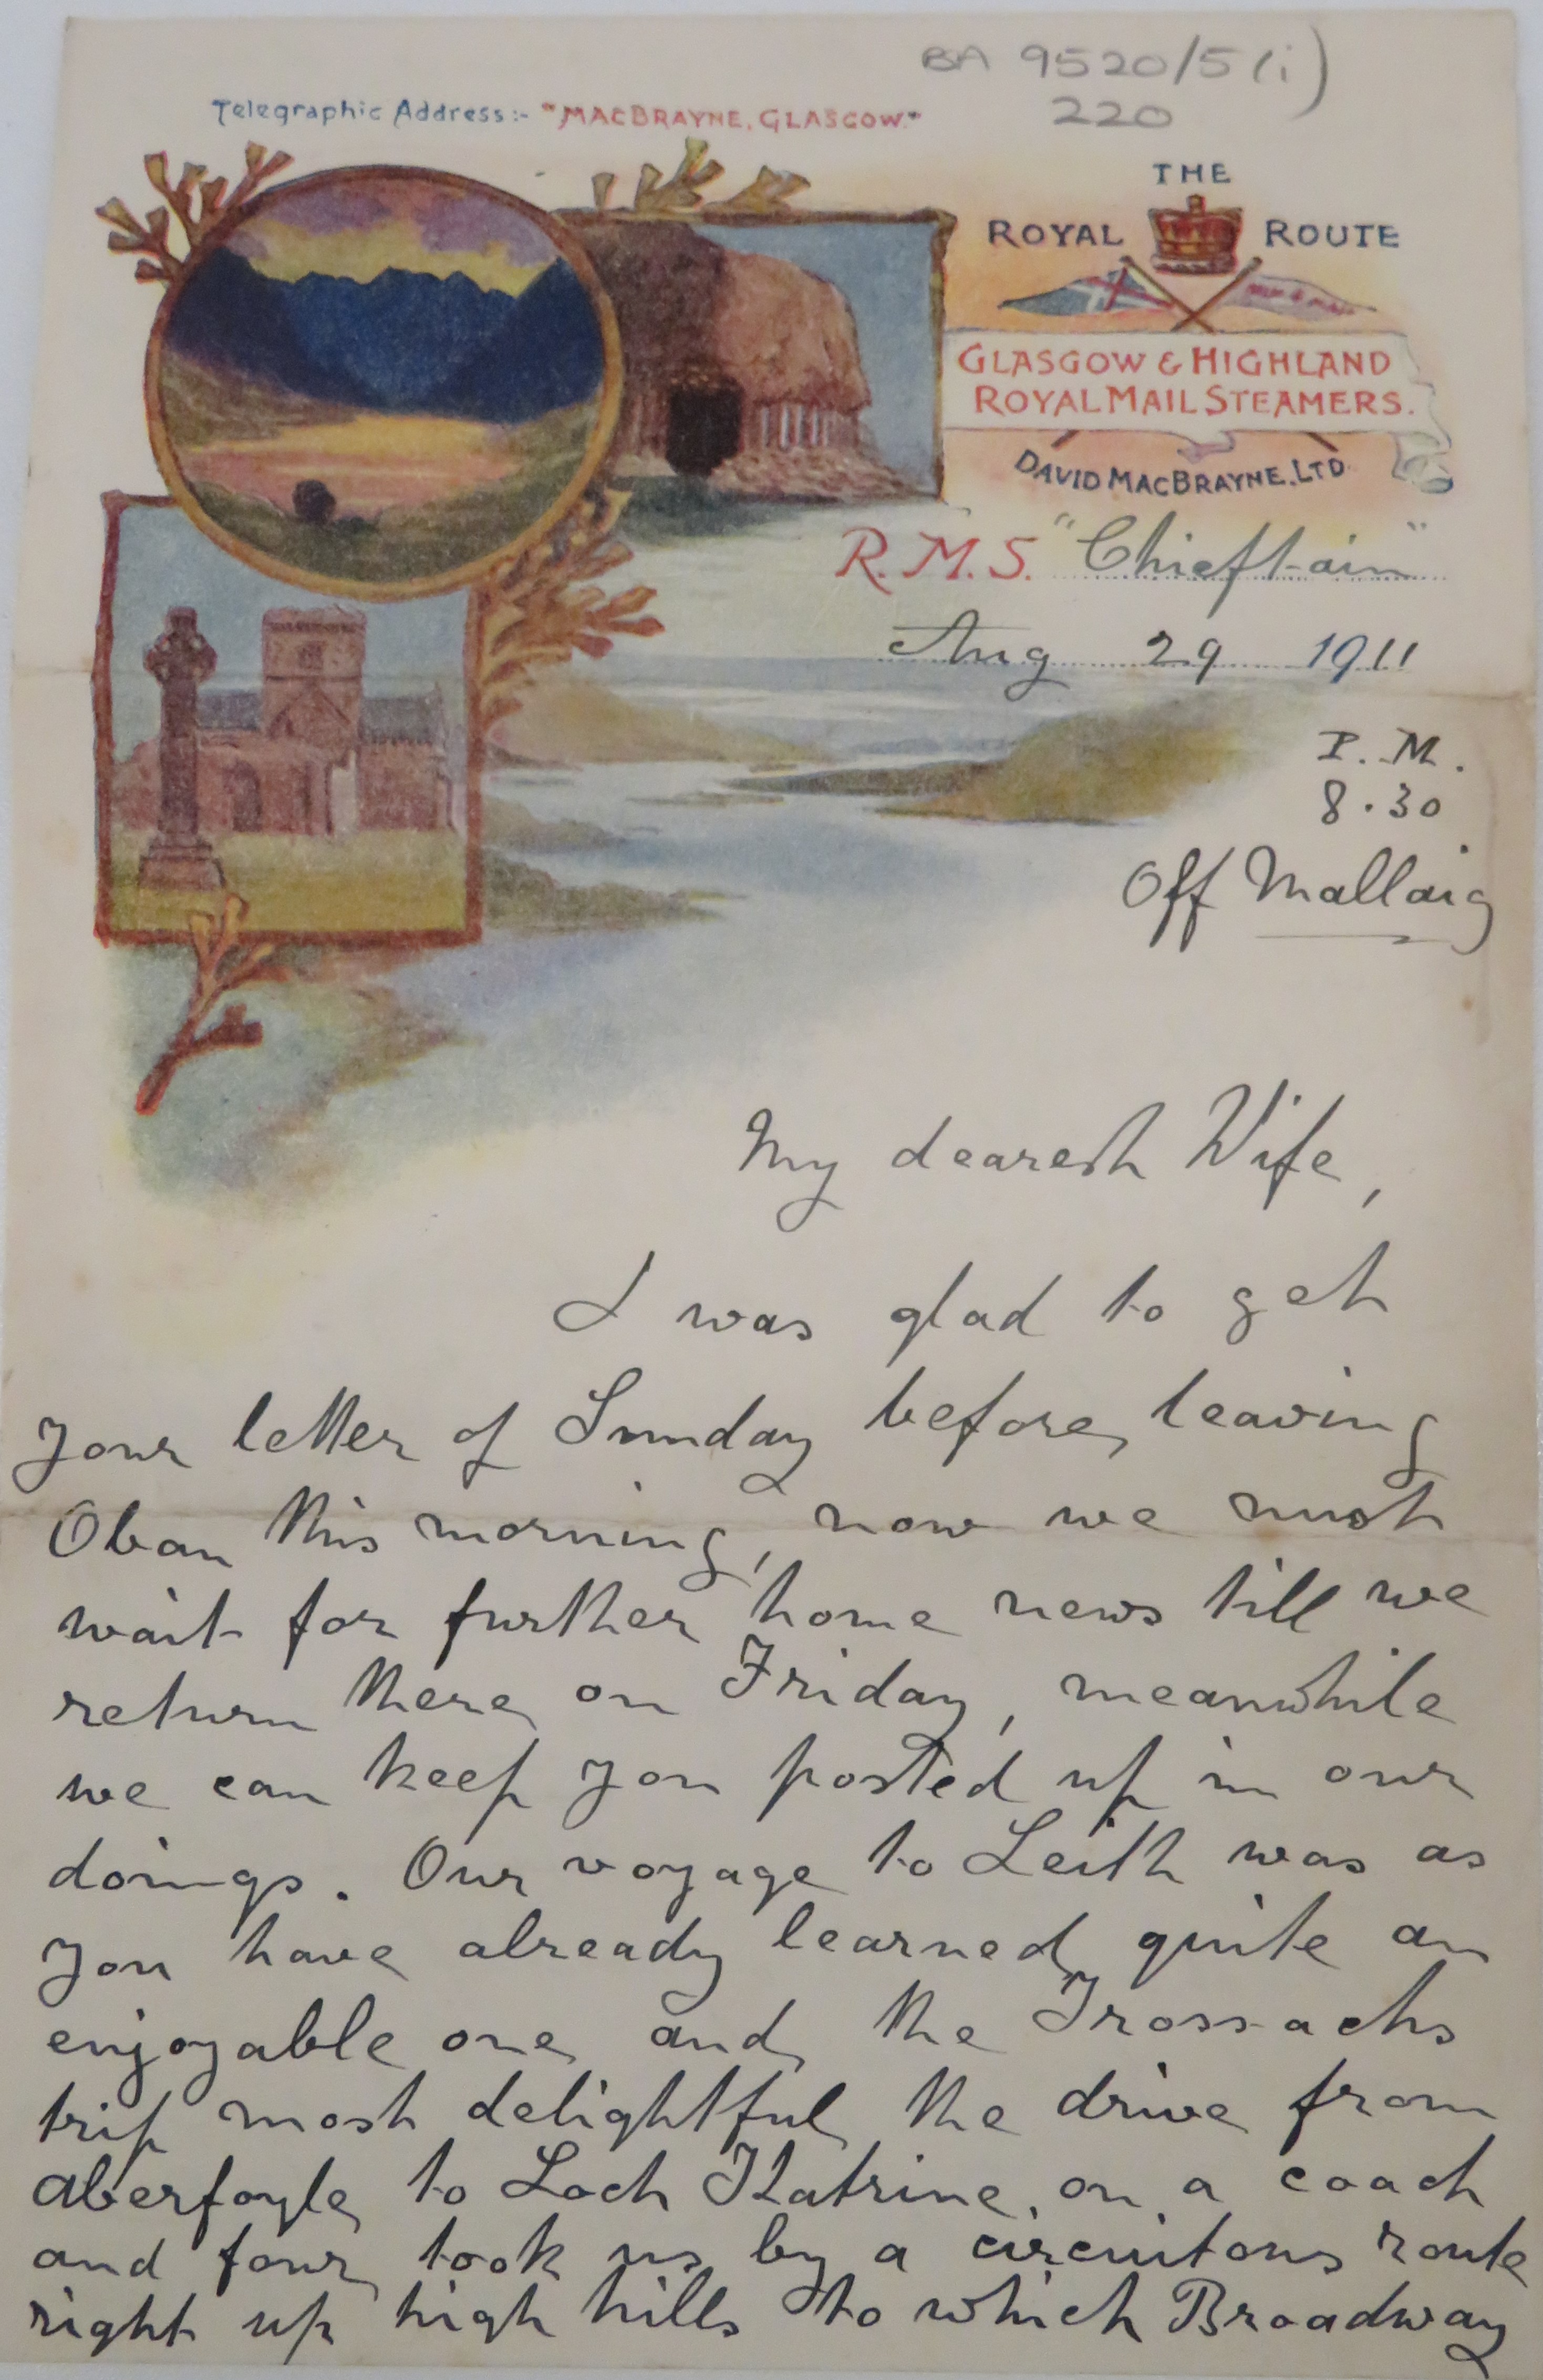 BA 9520/5 (i)
220
Telegraphic Address:- "MACBRAYNE, GLASGOW."
THE
ROYAL ROUTE
GLASGOW & HIGHLAND
ROYAL MAIL STEAMERS.
DAVID MACBRAYNE, LTD.
R.M.S. "Chieftain"
Aug 29 1911
P.M.
8.30
Off Mallaig
My dearest Wife,
I was glad to get
your letter of Sunday before leaving
Oban this morning, now we must
wait for further home news till we
return there on Friday, meanwhile
we can keep you posted up in our
doings. Our voyage to Leith was as
you have already learned quite an
enjoyable one and the Trossachs
trip most delightful the drive from
Aberfoyle to Loch Katrine, on a coach
and four took us by a circuitous route
right up high hills to which Broadway